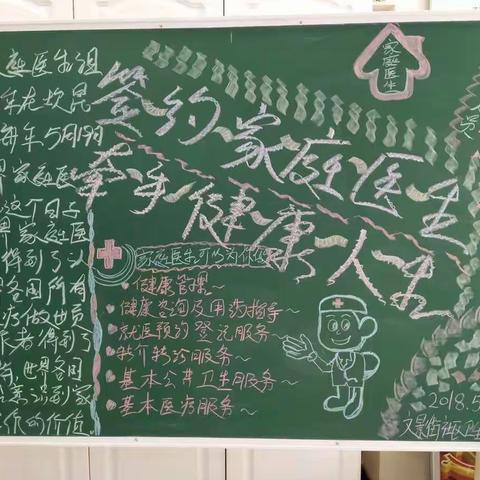 家庭医生
签约家庭医生
牵手健康人生
庭医生组
年在坎昆
每年5月19日
界家庭医
这个日子
界家庭医
得到了认
各国所有
疗做出贡
得到了
世界各国
到家
作的价值
家庭医生可以为你
健康管理~
健康咨询及用药指导~
就医预约登记服务~
转介转诊服务~
基本公共卫生服务~
基本医疗服务~
2018.5
文景街社区卫生